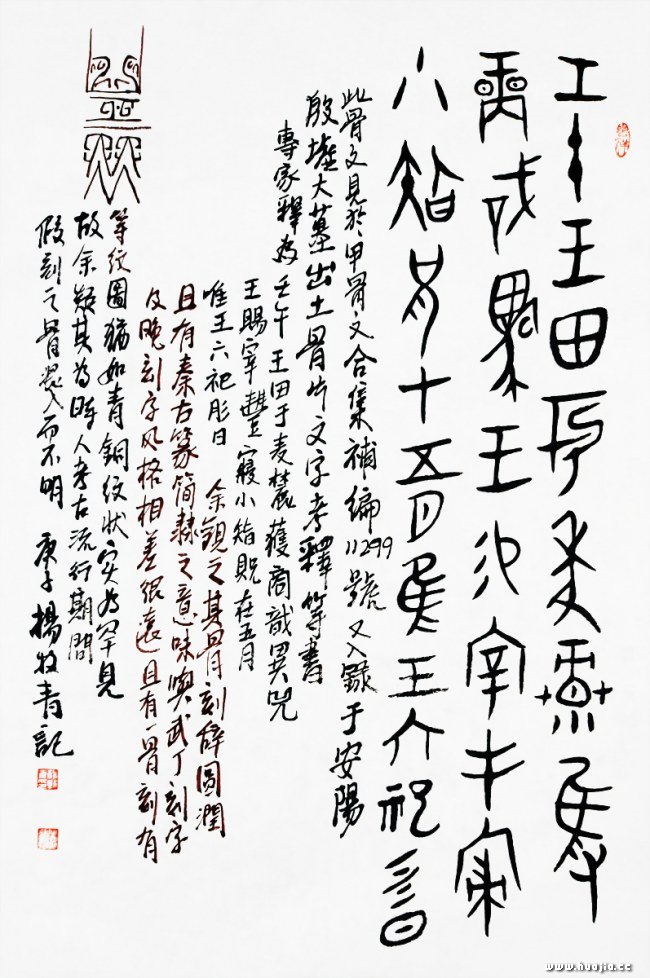 壬午王田于麥麓隻
商戠兕王易宰丰寢
小兄才五月隹王六祀彡日
此骨文見於甲骨文合集補編11299號又入錄于安陽
殷墟大墓出土骨片文字考釋等書
專家釋為壬午王田于麦麓獲商戠異兕
王賜宰豐寢小貺在五月
唯王六祀肜日 余觀之其骨刻辭圓潤
且有秦古篆簡隸之意味與武丁刻字
及晚刻字风格相差很遠且有一骨刻有
等纹圖猶如青銅紋狀实为罕見
故余疑其為時人考古流行期間
假刻之骨而不明 庚子楊牧青記
www.huajia.cc